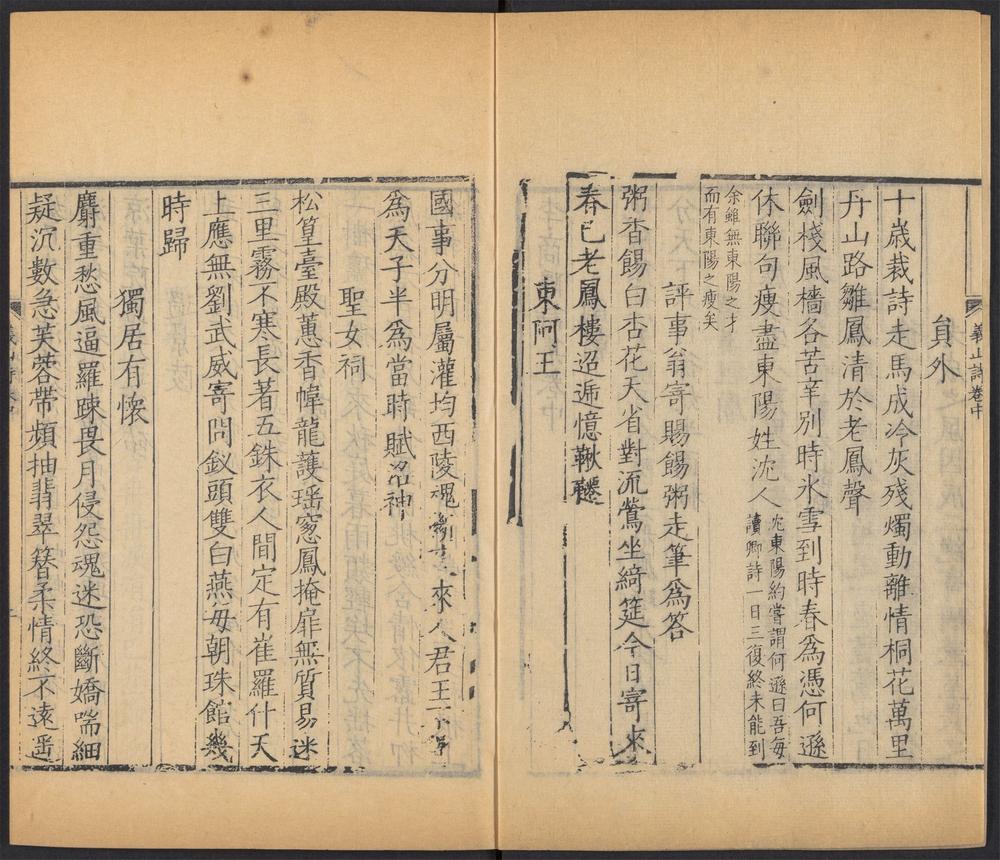 義山詩卷中
貟外
十歲裁詩走馬成冷灰殘燭動離情桐花萬里
丹山路雛鳳清於老鳳聲
劍棧風檣各苦辛別時氷雪到時春爲憑何遜
休聯句瘦盡東陽姓沈人沈東陽約嘗謂何遜曰吾每
讀卿詩一日三復終未能到
余雖無東陽之才
而有東陽之瘦矣
評事翁寄賜餳粥走筆爲答
粥香餳白杏花天省對流鶯坐綺筵今日寄來
春已老鳳樓迢遞憶鞦韆
東阿王
國事分明屬灌均西陵魂來人君王不
爲天子半爲當時賦洛神
聖女祠
松篁臺殿蕙香幃龍護瑶窓鳳掩扉無質易迷
三里霧不寒長著五銖衣人間定有崔羅什天
上應無劉武威寄問釵頭雙白燕每朝珠館幾
時歸
獨居有懷
麝重愁風逼羅踈畏月侵怨魂迷恐斷嬌喘細
疑沉數急芙蓉帶頻抽翡翠簪柔情終不遠遥